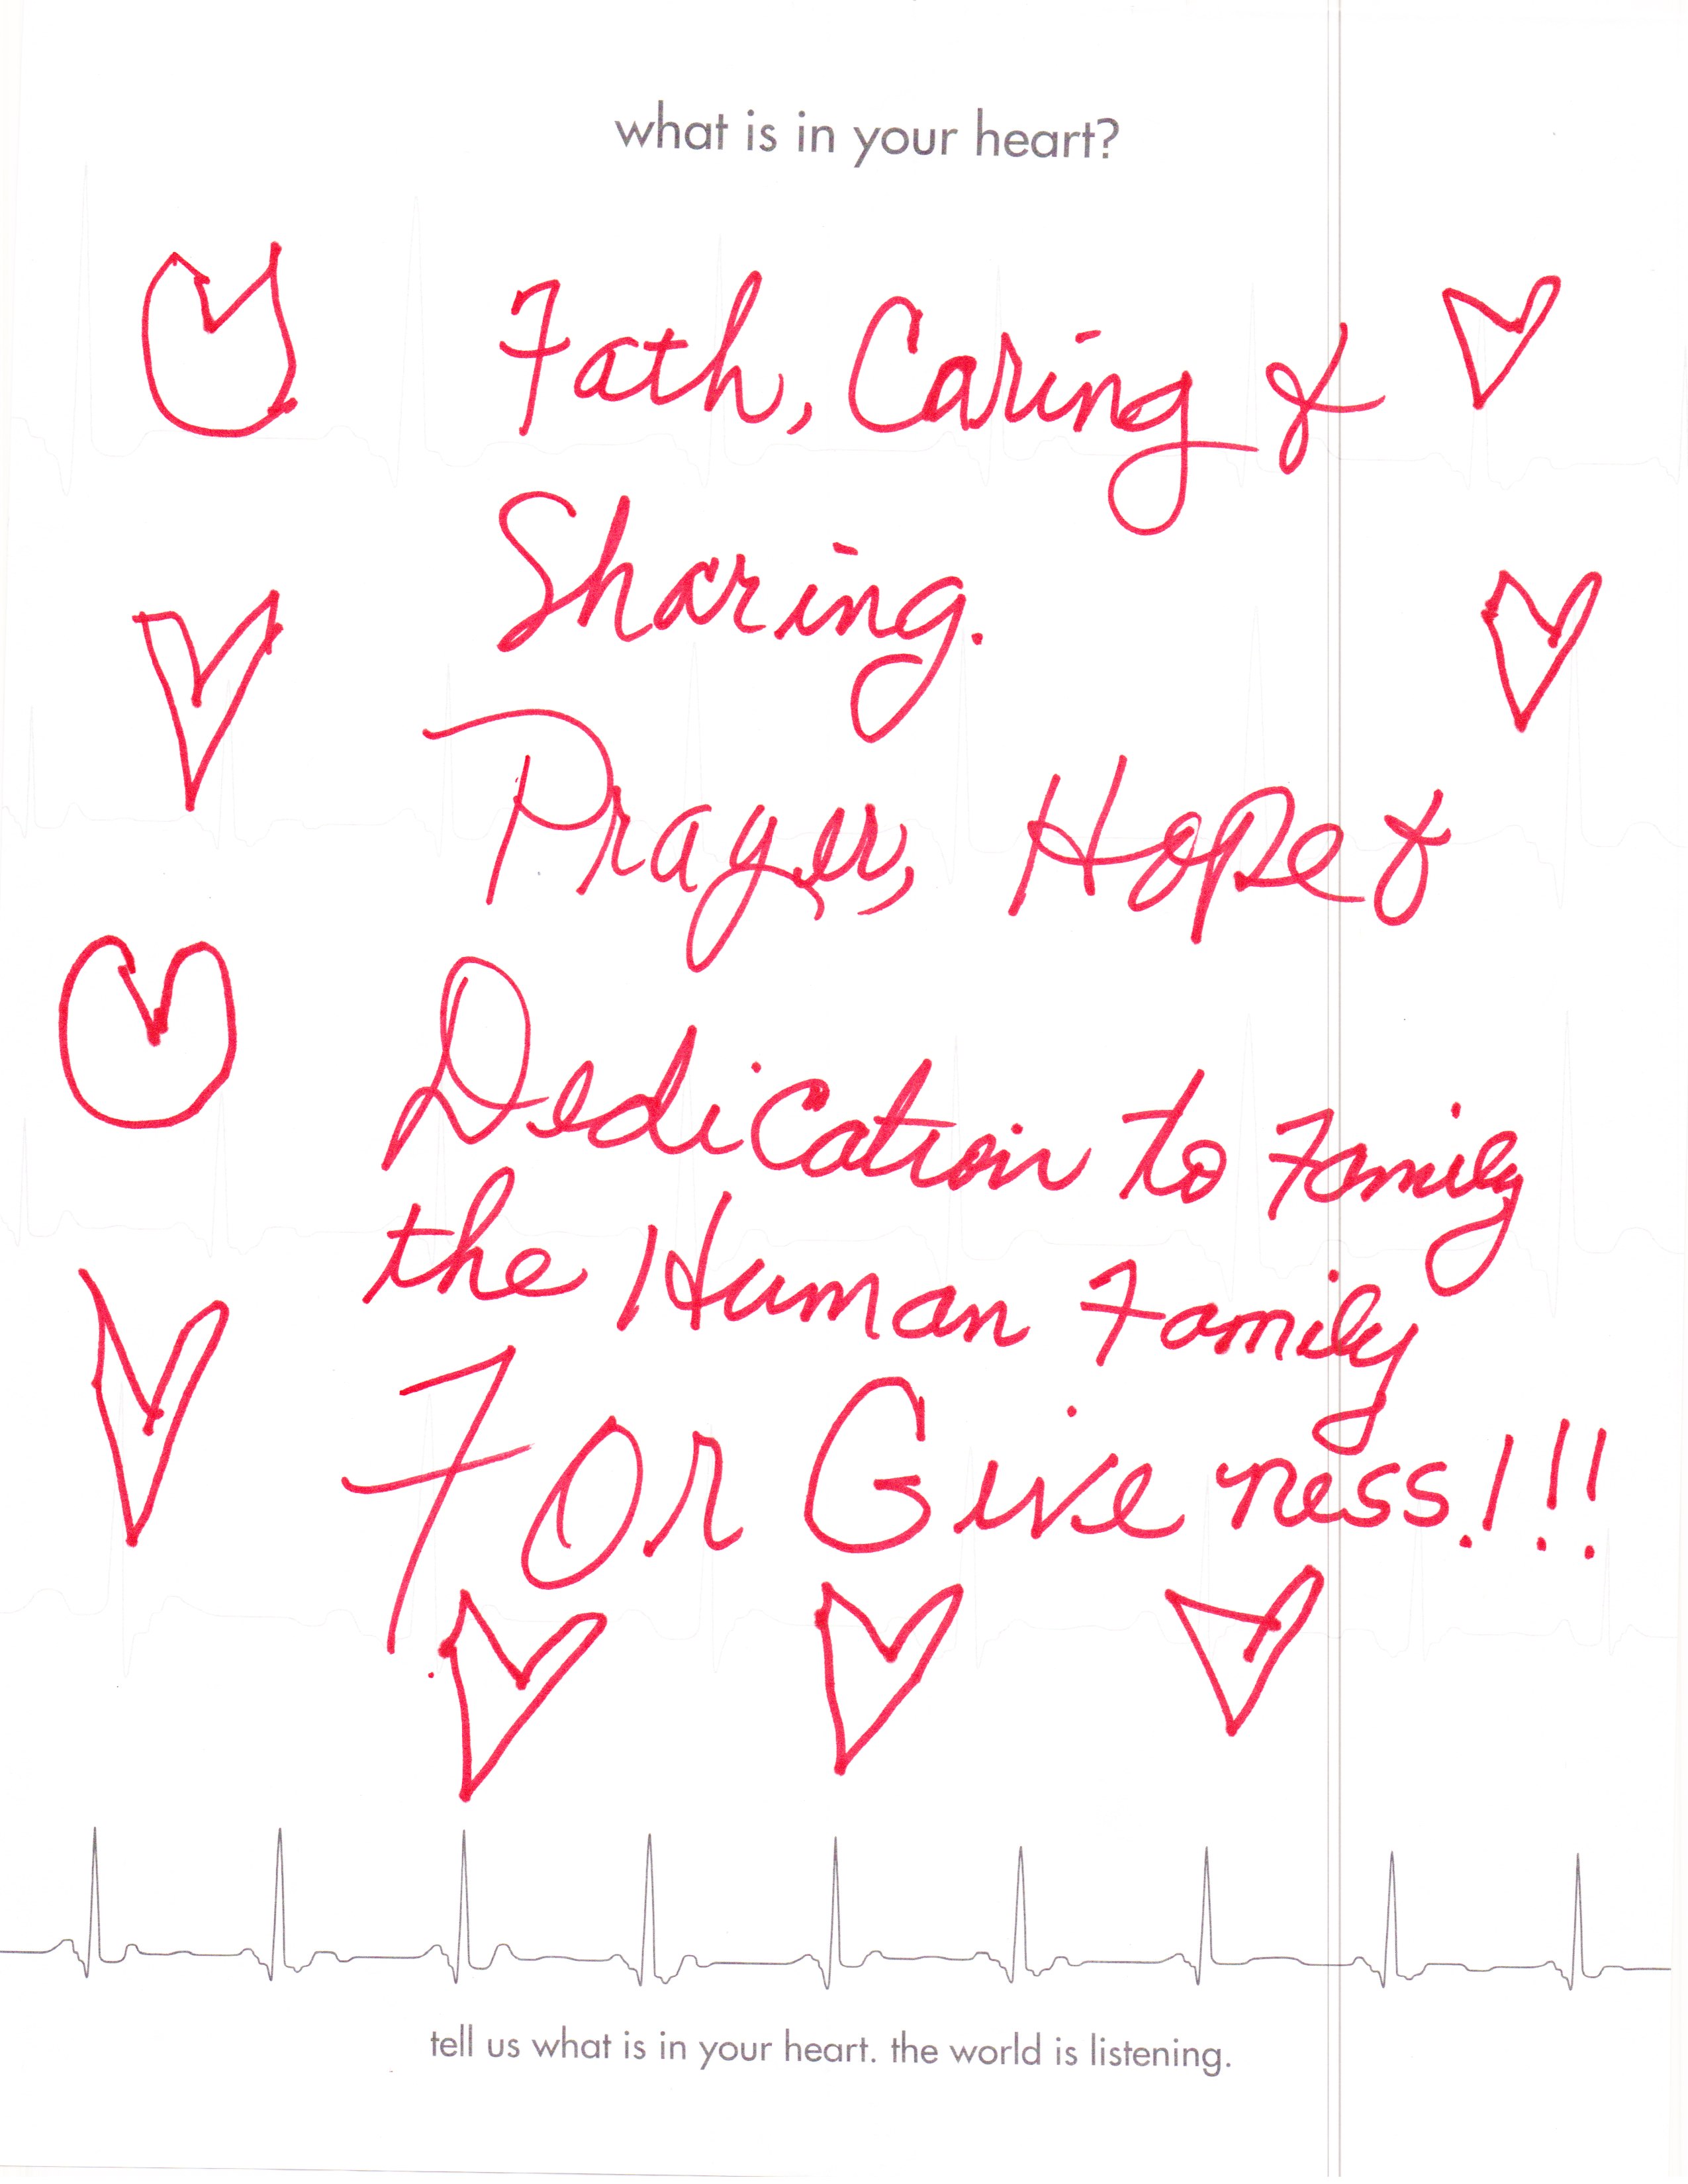 what is in your heart?
Fath, Caring &
Sharing.
Prayer, Hope &
Dedication to Family
the Human Family
For Giveness!!!
tell us what is in your heart. the world is listening.